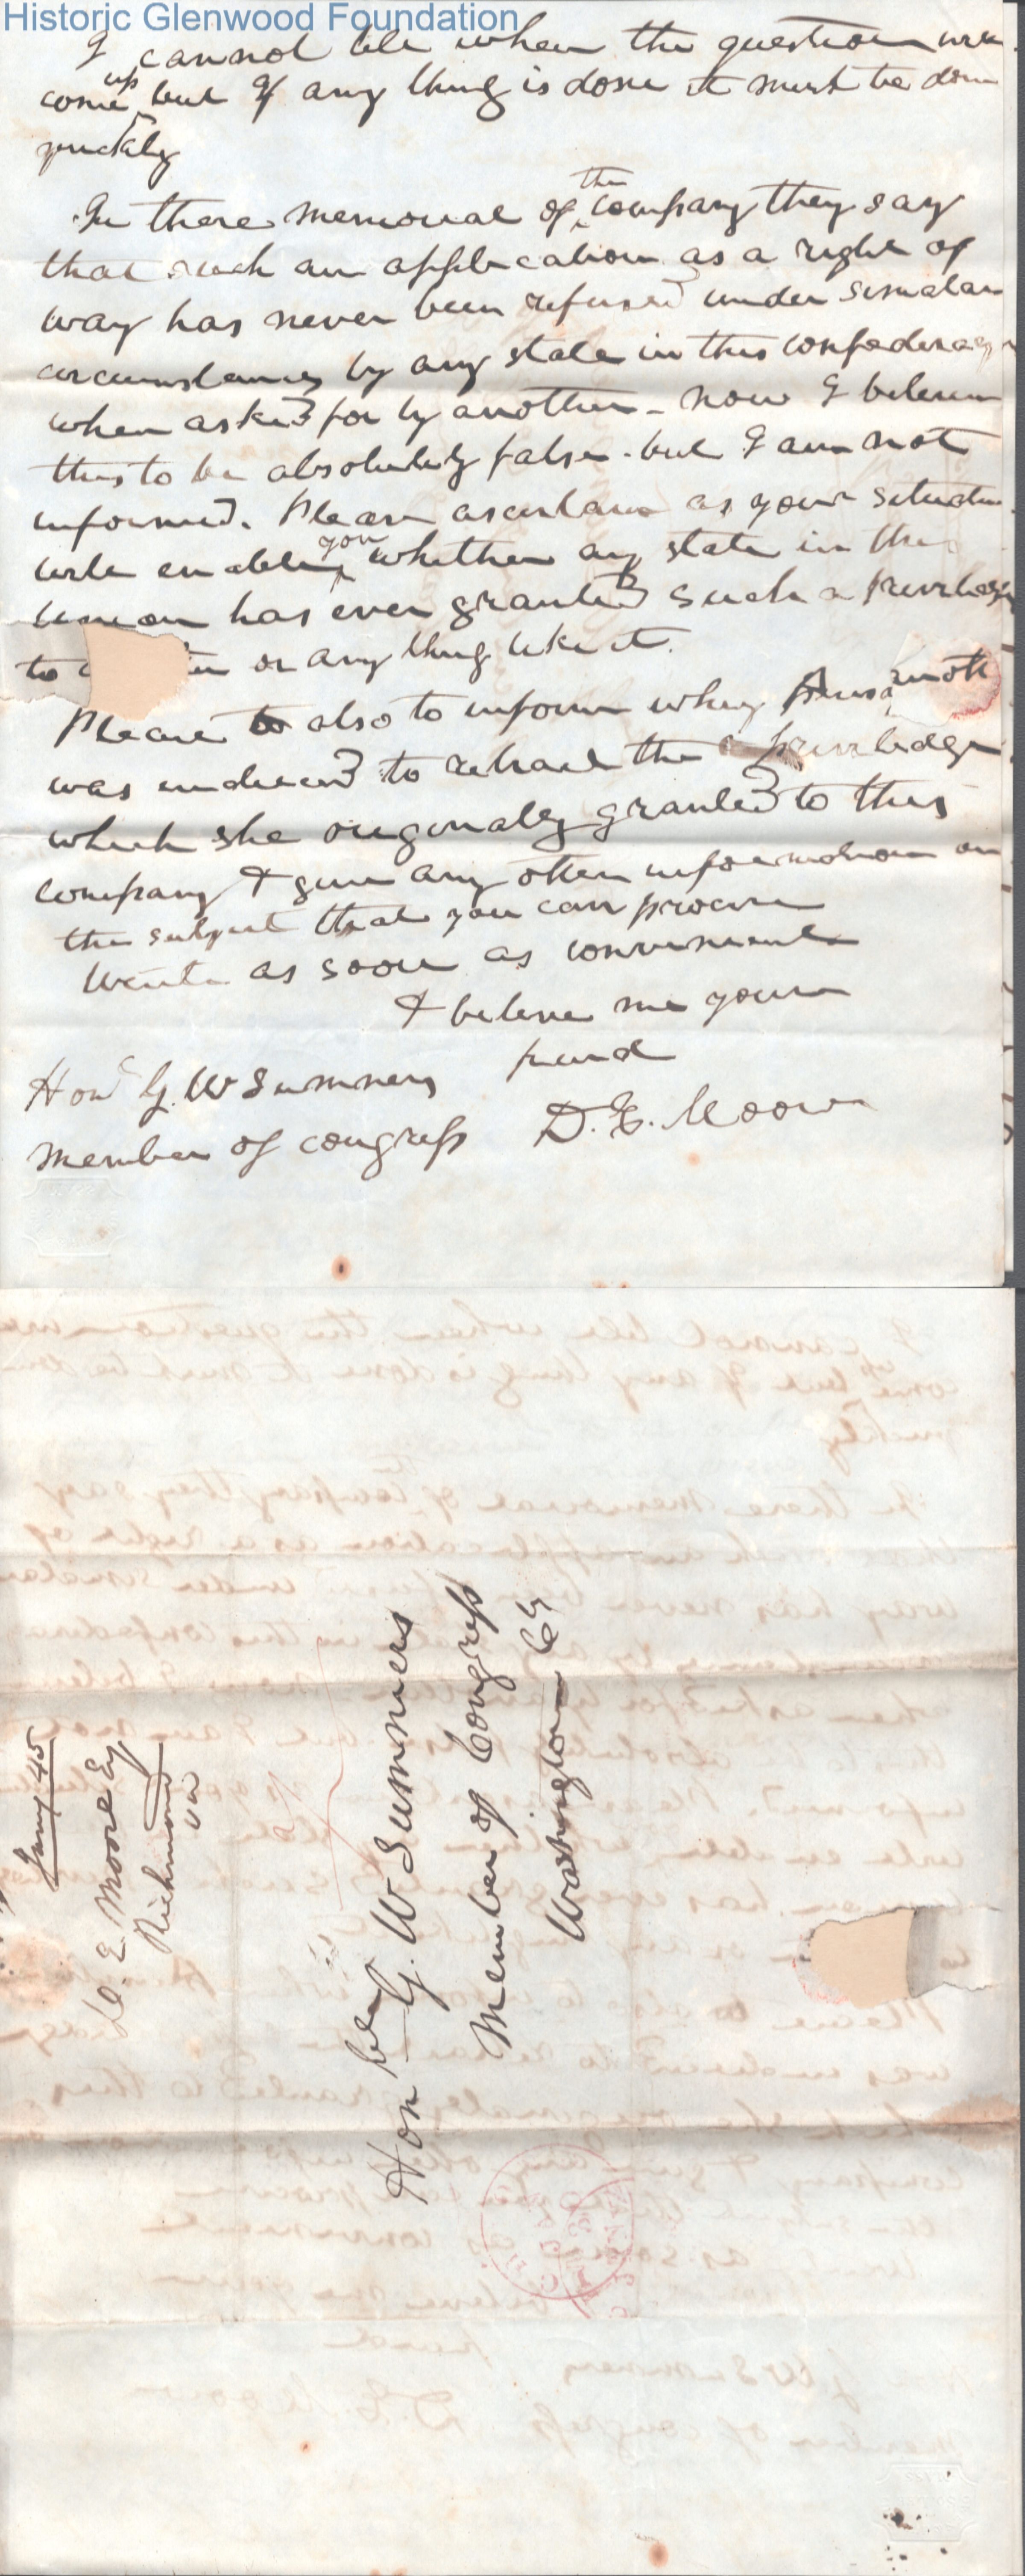 Historic Glenwood Foundation
I cannot tell when the question will
come up but if any thing is done it must be done
quickly
In there memorial of the company they say
that such an application as a right of
way has never been refused under similar
circumstances by any state in this confederacy
when asked for by another - now I believe
this to be absolutely false - but I am not
informed. Please ascertain as your situation
will enable you whether any state in this
union has ever granted such a priviledge
to or any thing like it.
Please to also to inform why
was induced to retract the priviledge
which she originally granted to this
company & give any other information on
the subject that you can procure
Write as soon as convenient
& believe me your
friend
D. E. Moore
Hon G. W Summers
member of congress
Hon ble G. W Summers
Member of Congress
Washington City
Jany 45
D. E. Moore Esq
Richmond
Va